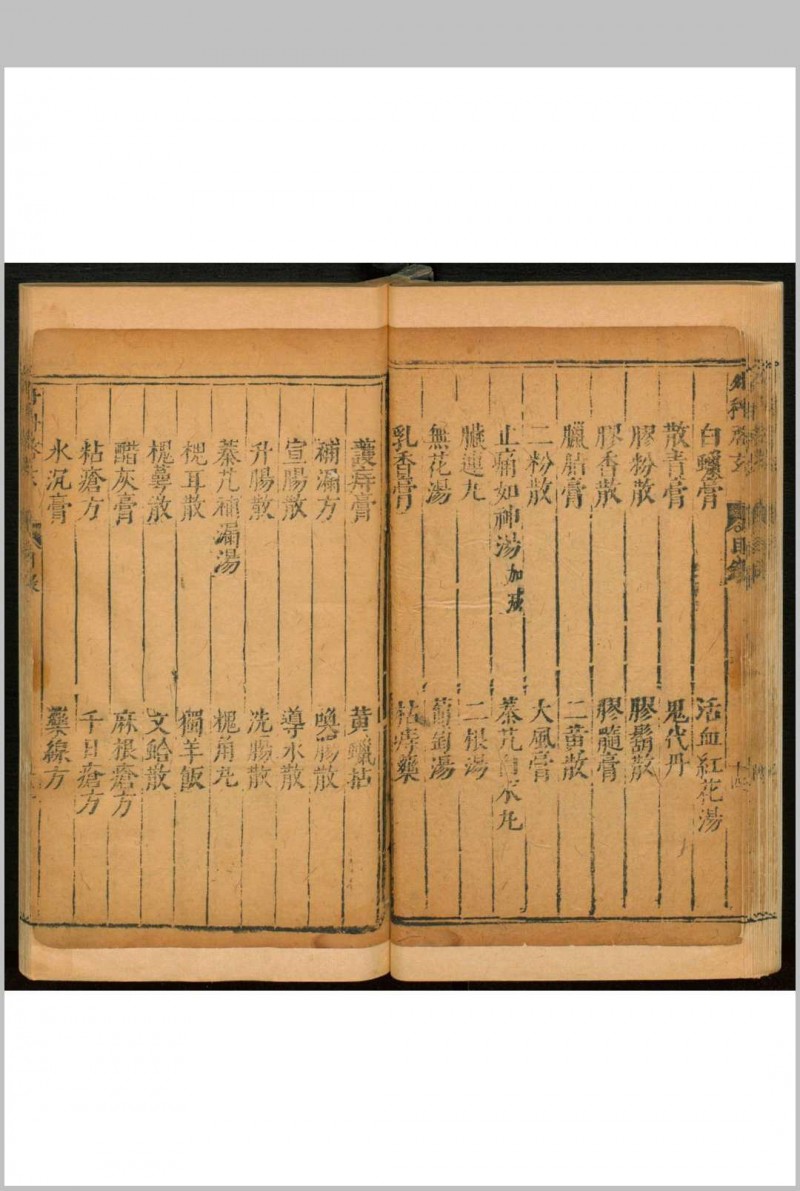 外科 玄
目錄
白蠟膏 活血紅花湯
散青膏 鬼代丹
膠粉散 膠鬍散
膠香散 膠髓膏
臘脂膏 二黃散
二粉散 大風膏
止痛如神湯加減 秦艽 丸
臟連丸 二根湯
無花湯 葡萄湯
乳香膏 枯痔藥
護痔膏 黃蠟拈
補漏方 喚腸散
宣腸散 導水散
升腸散 洗腸散
秦艽補漏湯 槐角丸
槐耳散 獨羊飯
槐蕚散 文蛤散
醋灰膏 麻根瘡方
粘瘡方 千日瘡方
水沉膏 藥線方
目錄